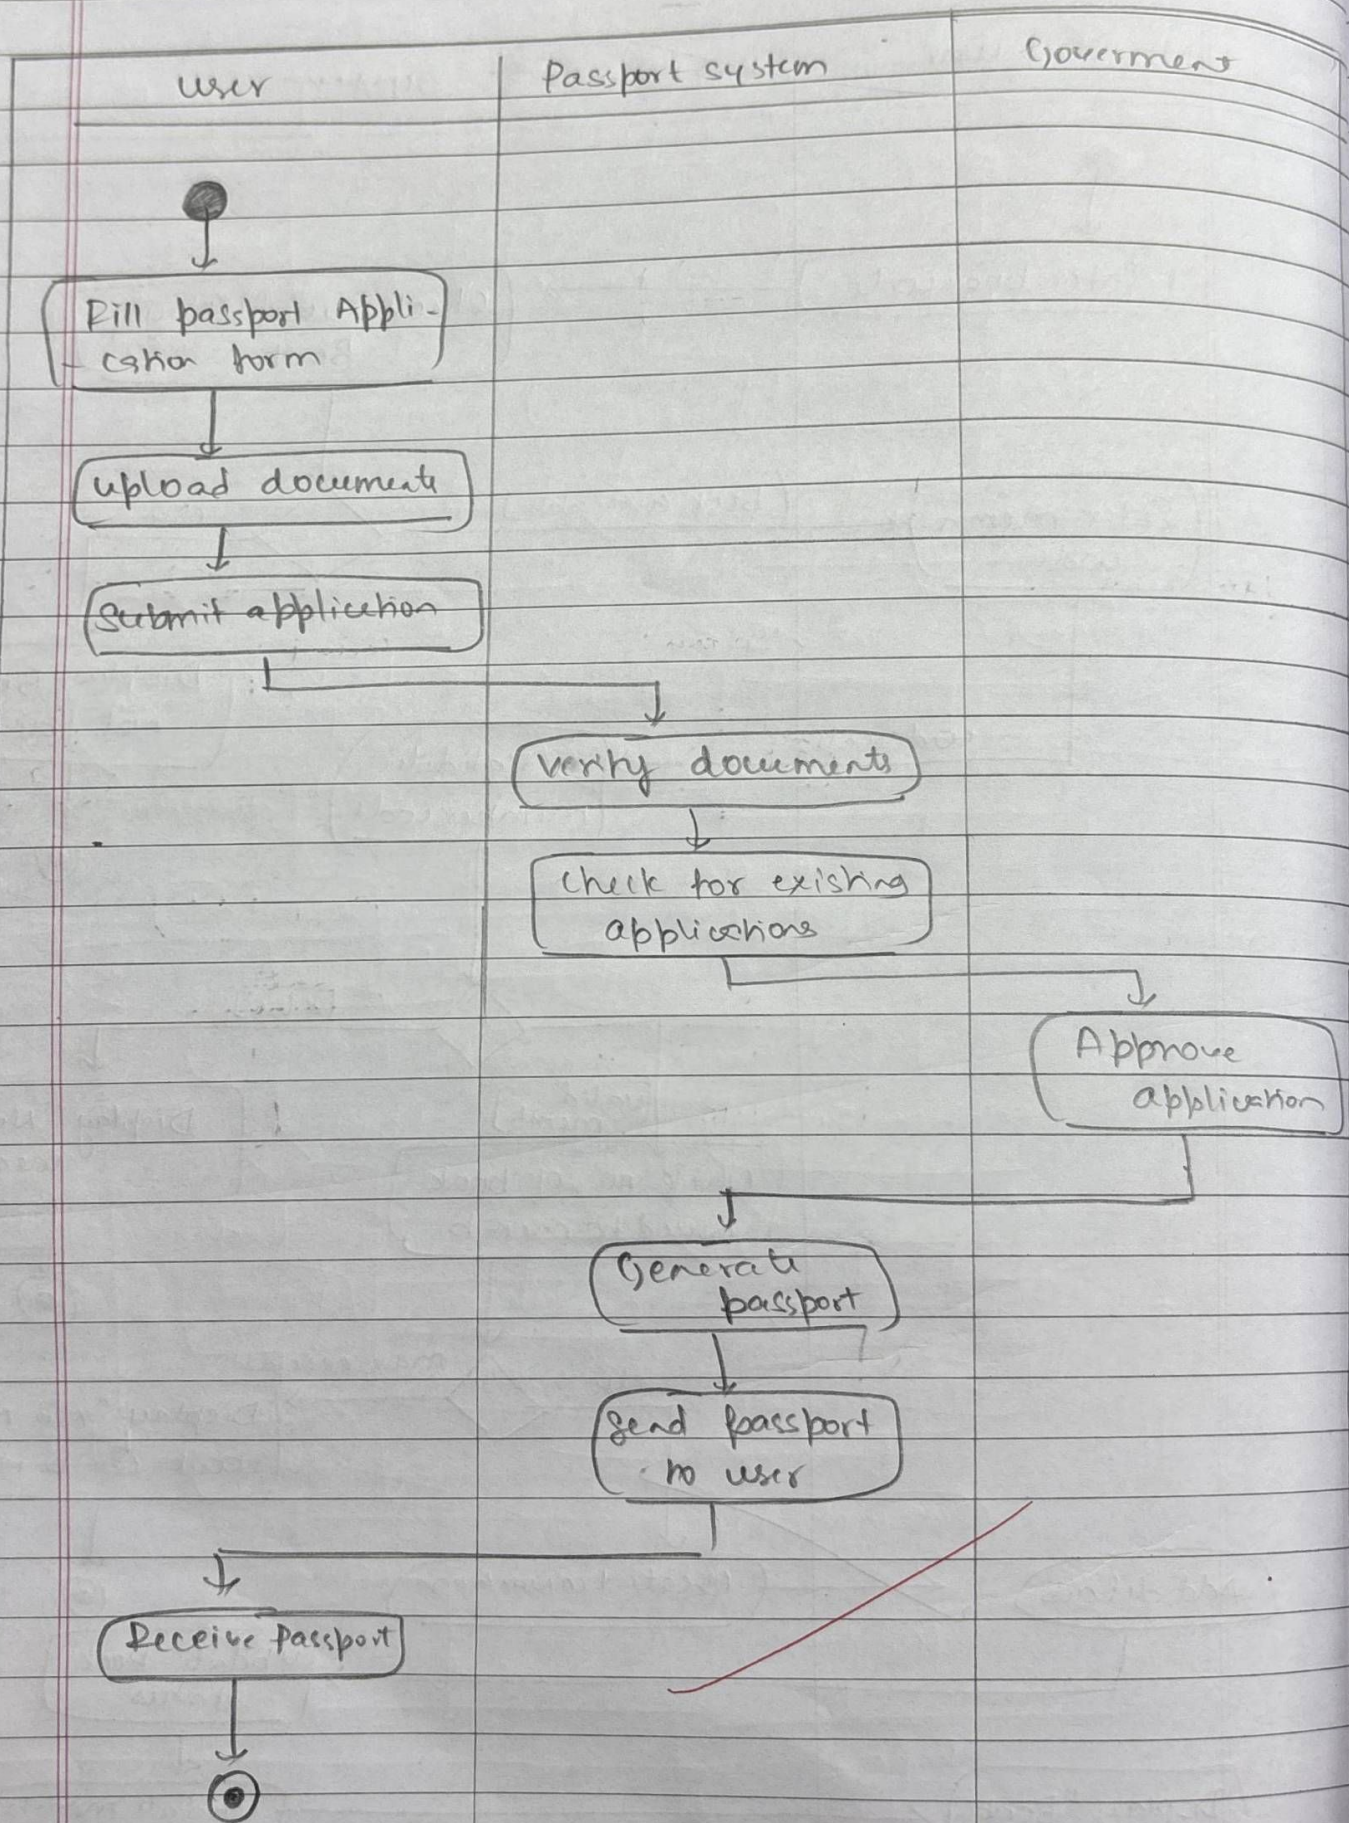 user
Passport system
Goverment
Fill passport Appli-
cation form
upload documents
Submit application
verify documents
check for existing
applications
Approve
application
Generate
passport
Send passport
to user
Receive Passport